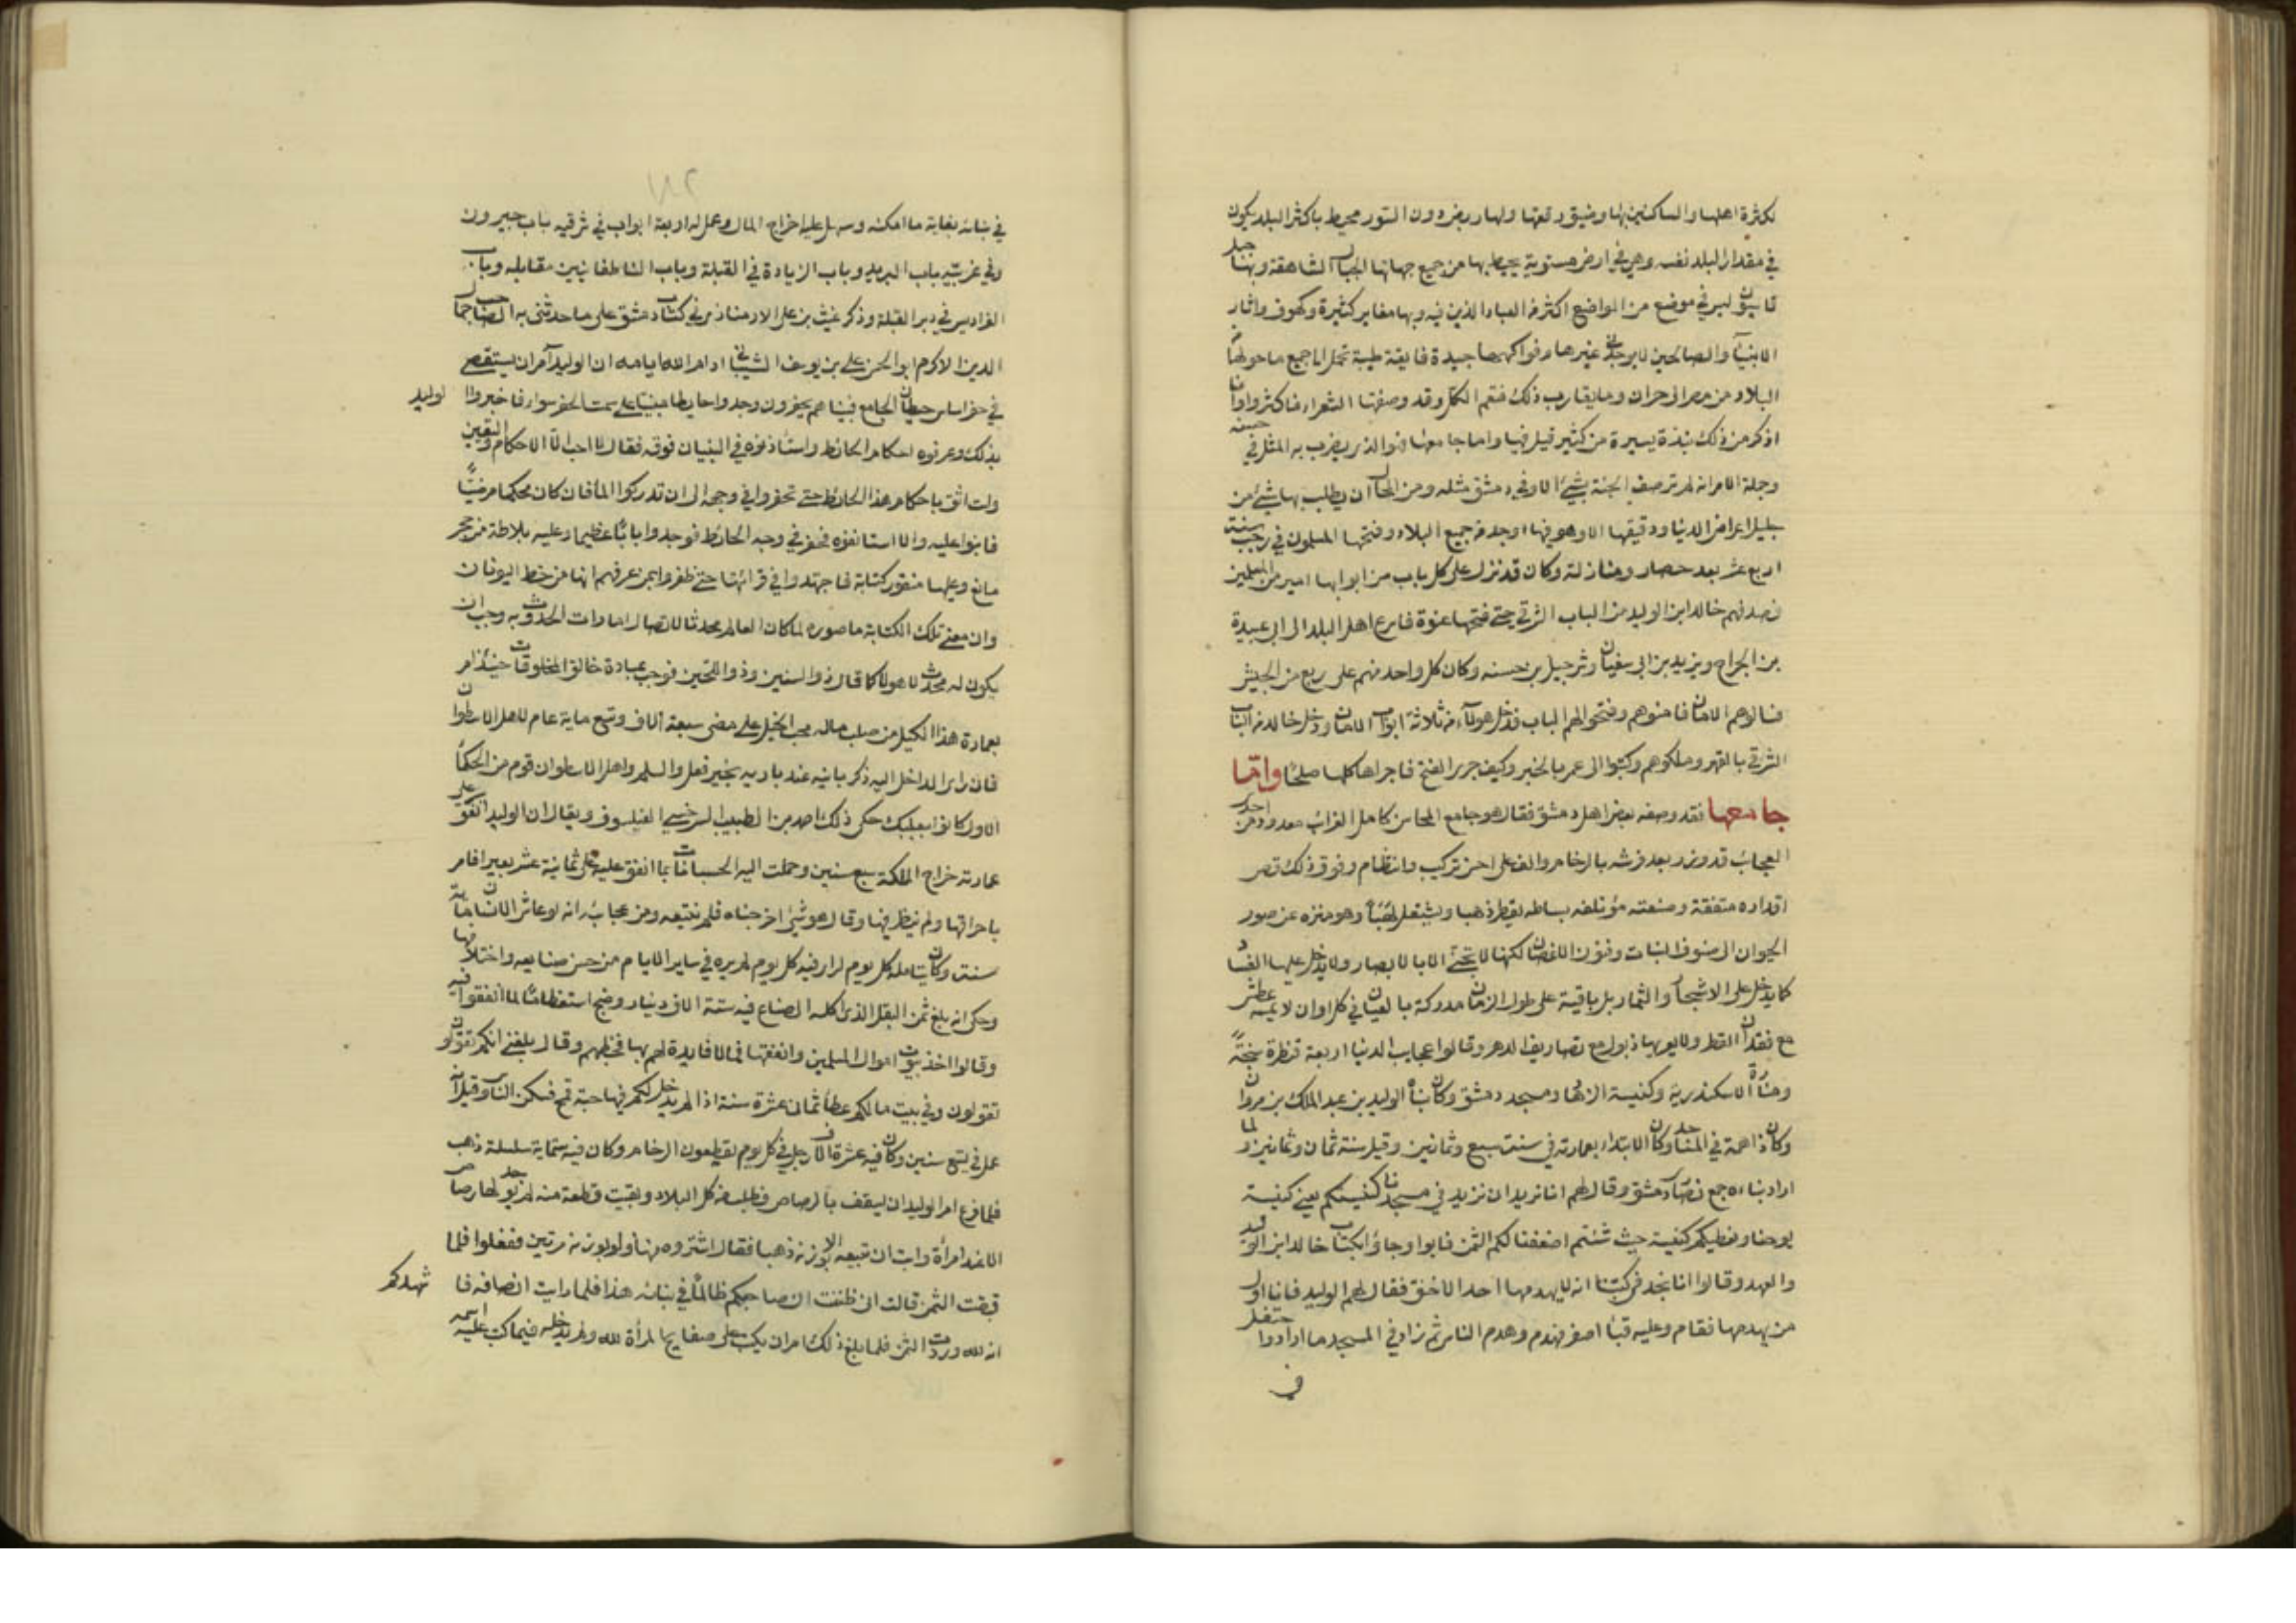 لكثرة اهلها والساكنين بها وضيق رقعتها ولها ربض دون السور محيط باكثر البلد يكون
في مقدار البلد نفسه وهي في ارض مستوية يحيط بها من جميع جهاتها الجبال الشاهقة وبها جبل
قاسيون ليس في موضع من المواضع اكثر من العباد الذين فيه وبها مغاير كثيرة وكهوف واثار
الانبيآ والصالحين لا يوجد في غيرها وفواكهها جيدة فايقة طيبة تحمل الى جميع ما حولها
البلاد من مصر الى حران وما يقارب ذلك فتعم الكل وقد وصفتها الشعراء فاكثروا وانا
اذكر من ذلك نبذة يسيرة من كثير قيل فيها واما جامعها فهو الذي يضرب به المثل في حسنه
وجملة الامر انه لم توصف الجنة بشيء الا وفي دمشق مثله ومن المحال ان يطلب بها شيء من
جليل اعراض الدنيا ودقيقها الا وهو فيها اوجد من جميع البلاد وفتحها المسلمون في رجب سنة
اربع عشر بعد حصار ومنازلة وكان قد نزل على كل باب من ابوابها امير من المسلمين
فصدفهم خالد ابن الوليد من الباب الشرقي حتى فتحها عنوة فاسرع اهل البلد الى ابي عبيدة
بن الجراح ويزيد بن ابي سفيان وشرحبيل بن حسنه وكان كل واحد منهم على ربع من الجيش
فسالوهم الامان فامنوهم وفتحوا لهم الباب فدخل هولآء من ثلاثة ابواب الامان ودخل خالد من الباب
الشرقي بالقهر وملكوهم وكتبوا الى عمر بالخبر وكيف جرى الفتح فاجراها كلها صلحا واما
جامعها فقد وصفه بعض اهل دمشق فقال هو جامع المحاسن كامل الغرائب معدود من احدى
العجائب قد وزر بعد فرشه بالرخام والف على احسن تركيب وانتظام وفوق ذلك قصر
اقداره متفقة وصنعته مؤتلفه بساطه يقطر ذهبا ويشتعل لهبا وهو منزه عن صور
الحيوان الى صنوف النبات وفنون الاغصان لكنها لا تجنى الا بالابصار ولا يدخل عليها الفساد
كما يدخل على الاشجار والثمار بل باقية على طول الزمان مدركة بالعيان في كل اوان لا يمسه عطش
مع فقدان القطر ولا يعريها ذبول مع تصاريف الدهر وقالوا عجايب الدنيا اربعة قنطرة سنجة
ومنارة الاسكندرية وكنيسة الرها ومسجد دمشق وكان بناه الوليد بن عبد الملك بن مروان
وكان ذا همة في المساجد وكان الابتداء بعمارته في سنة سبع وثمانين وقيل سنة ثمان وثمانين ولما
اراد بناءه جمع نصارى دمشق وقال لهم انا نريد ان نزيد في مسجدنا كنيستكم يعني كنيسة
يوحنا ونعطيكم كنيسة حيث شئتم اضعفنا لكم الثمن فابوا وجاؤا بكتاب خالد ابن الوليد
والعهد وقالوا انا نجد في كتبنا انه لا يهدمها احد الا خنق فقال لهم الوليد فانا اول
من يهدمها فقام وعليه قبا اصفر فهدم وهدم الناس ثم زاد في المسجد ما ارادوا حتفل
في
١٨٢
في بنائه بغاية ما امكنه وسهل عليه اخراج المال وعمل له اربعة ابواب في شرقيه باب جيرون
وفي غربيه باب البريد وباب الزيادة في القبلة وباب الناطفانيين مقابله وباب
الفراديس في دبر القبلة وذكر غيث بن علي الارمنازي في كتاب دمشق على ما حدثني به الصاحب جمال
الدين الاكرم ابو الحسن علي بن يوسف الشيباني ادام الله ايامه ان الوليد امر ان يستقصى
في حفر اساس حيطان الجامع فبينا هم يحفرون وجدوا حايطا مبنيا على سمت الحفر سواء فاخبروا الوليد
بذلك وعرفوه احكام الحائط واستاذنوه في البنيان فوقه فقال لا احب الا الاحكام واليقين
ولست اثق باحكام هذا الحائط حتى تحفروا في وجهه الى ان تدركوا الما فان كان محكما مرضيا
فابنوا عليه والا استانفوه فحفر في وجه الحائط فوجدوا بابا عظيما وعليه بلاطة من حجر
مانع وعليها منقور كتابة فاجتهدوا في قرائتها حتى ظفروا بمن عرفهم انها من خط اليونان
وان معنى تلك الكتابة ما صوره لما كان العالم محدثا لاتصال امارات الحدوث به وجب ان
يكون له محدث لا هولا كما قال ذو السنين وذو اللحيين فوجب عبادة خالق المخلوقات حينئذ امر
بعمارة هذا الهيكل من صلب ماله محب الخيل على مضى سبعة الاف وتسع ماية عام لاهل الاسطوان
فان راى الداخل اليه ذكر بانيه عند باريه بخير فعل والسلم واهل الاسطوان قوم من الحكما
الاول كانوا ببعلبك حكى ذلك احمد بن الطبيب السرخسي الفيلسوف ويقال ان الوليد انفق على
عمارته خراج المملكة سبع سنين وحملت اليه الحسبانات بما انفق عليه على ثمانية عشر بعيرا فامر
باحراقها ولم ينظر فيها وقال هو شيء اخرجناه فلم نتبعه ومن عجائبه انه لو عاش الانسان ماية
سنة وكان يتامله كل يوم لراى فيه كل يوم لم يره في ساير الايام من حسن صنايعه واختلافها
وحكى انه بلغ ثمن البقل الذي اكله الصناع فيه ستة الاف دينار وضج استعظاما لما انفقوا فيه
وقالوا اخذ بيوت اموال المسلمين وانفقها فيما لا فايدة لهم بها فخطبهم وقال بلغني انكم تقولون
تقولون وفي بيت مالكم عطا ثماني عشرة سنة اذا لم يدخل لكم فيها حبة قمح فسكن الناس وقيل انه
عمل في تسع سنين وكان فيه عشرة الاف رجل في كل يوم يقطعون الرخام وكان فيه ستماية سلسلة ذهب
فلما فرغ امر الوليد ان يسقف بالرصاص فطلب من كل البلاد وبقيت قطعة منه لم يوجد لها رصاص
الا عند امراة وابت ان تبيعه الا بوزنه ذهبا فقال اشتروه منها ولو بوزنه مرتين ففعلوا فلما
قبضت الثمن قالت اني ظننت ان صاحبكم ظالما في بنائه هذا فلما رايت انصافه فا شهدكم
انه لله وردت الثمن فلما بلغ ذلك امر ان يكتب على صفايح المراة لله ولم يدخله فيما كتب عليه اسمه